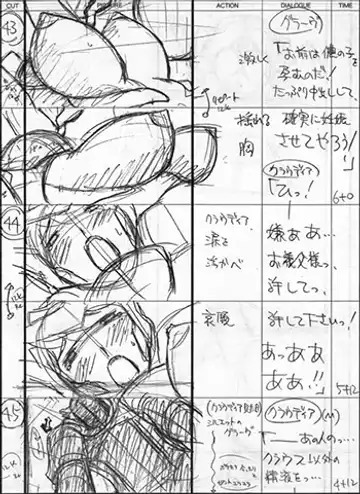 CUT
PICTURE
ACTION
DIALOGUE
TIME
43
激しく
グラーヴ
「お前は俺の子を
孕むのだ!
たっぷり中出しして
揺れる
胸
確実に妊娠
させてやろう!」
クラウディア
「ひっ!
6+0
44
クラウディア
涙を
浮かべ
嫌ああ…
お義父様っ、
許してっ、
哀願
許して下さいっ!
あっああ
ああ!!」
5+12
45
クラウディア
(M)
「——あの人のっ…
クラウス以外の
精液をっ…
4+12